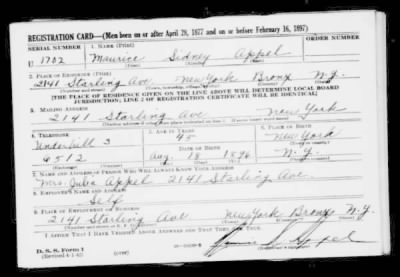 REGISTRATION CARD—(Men born on or after April 28, 1877 and on or before February 16, 1897)
SERIAL NUMBER 1. NAME (Print) ORDER NUMBER
U 1702 Maurice Sidney Appel
2. PLACE OF RESIDENCE (Print)
2141 Starling Ave New York Bronx N.Y.
[THE PLACE OF RESIDENCE GIVEN ON THE LINE ABOVE WILL DETERMINE LOCAL BOARD
JURISDICTION; LINE 2 OF REGISTRATION CERTIFICATE WILL BE IDENTICAL]
3. MAILING ADDRESS
2141 Starling Ave New York
4. TELEPHONE 5. AGE IN YEARS 6. PLACE OF BIRTH
Underhill 3 45 New York
DATE OF BIRTH
6512 Aug. 18 1896 N.Y.
7. NAME AND ADDRESS OF PERSON WHO WILL ALWAYS KNOW YOUR ADDRESS
Mrs. Appel 2141 Starling Ave.
8. EMPLOYER'S NAME AND ADDRESS
Self
9. PLACE OF EMPLOYMENT OR BUSINESS
2141 Starling Ave New York Bronx N.Y.
I AFFIRM THAT I HAVE VERIFIED ABOVE ANSWERS AND THAT THEY ARE TRUE.
D. S. S. Form 1
(Revised 4-1-42) (over) S. Appel